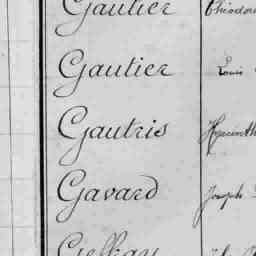 Gautier Théodore
Gautier Louis
Gautris Hyacinthe
Gavard Joseph